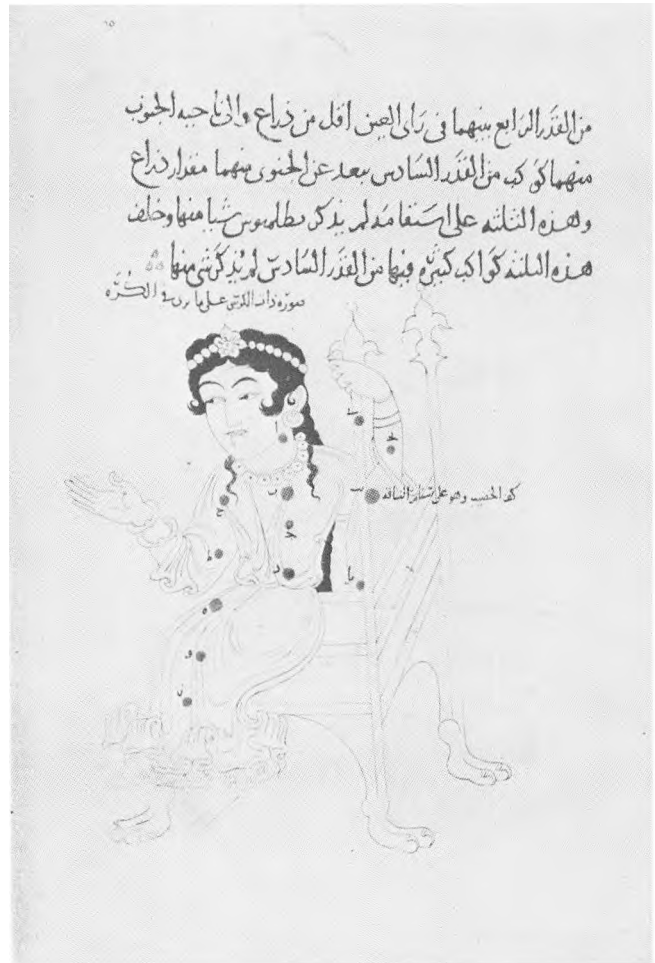 ٦٥
من القدر الرابع بينهما فى راى العين اقل من ذراع والى ناحيه الجنوب
منهما كوكب من القدر السادس يبعد عن الجنوبى منهما مقدار ذراع
وهذه الثلثه على استقامه لم يذكر بطلميوس شيا منها وخلف
هذه الثلثه كواكب كثيره فيها من القدر السادس لم يذكر شى منها
صوره ذات الكرسى على ما يرى فى الكره
كف الخضيب وهو على سنام الناقه